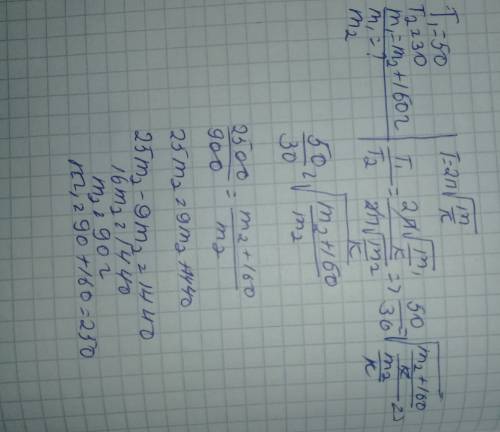 T₁ = 50
T₂ = 30
m₁ = m₂ + 160г
m₁ = ?
m₂
T = 2π√(m/к)
T₁/T₂ = 2π√(m₁/к) / 2π√(m₂/к) => 50/30 = √((m₂+160)/к / m₂/к) =>
50/30 = √((m₂+160)/m₂)
2500/900 = (m₂+160)/m₂
25m₂ = 9m₂ + 1440
25m₂ - 9m₂ = 1440
16m₂ = 1440
m₂ = 90г
m₁ = 90 + 160 = 250